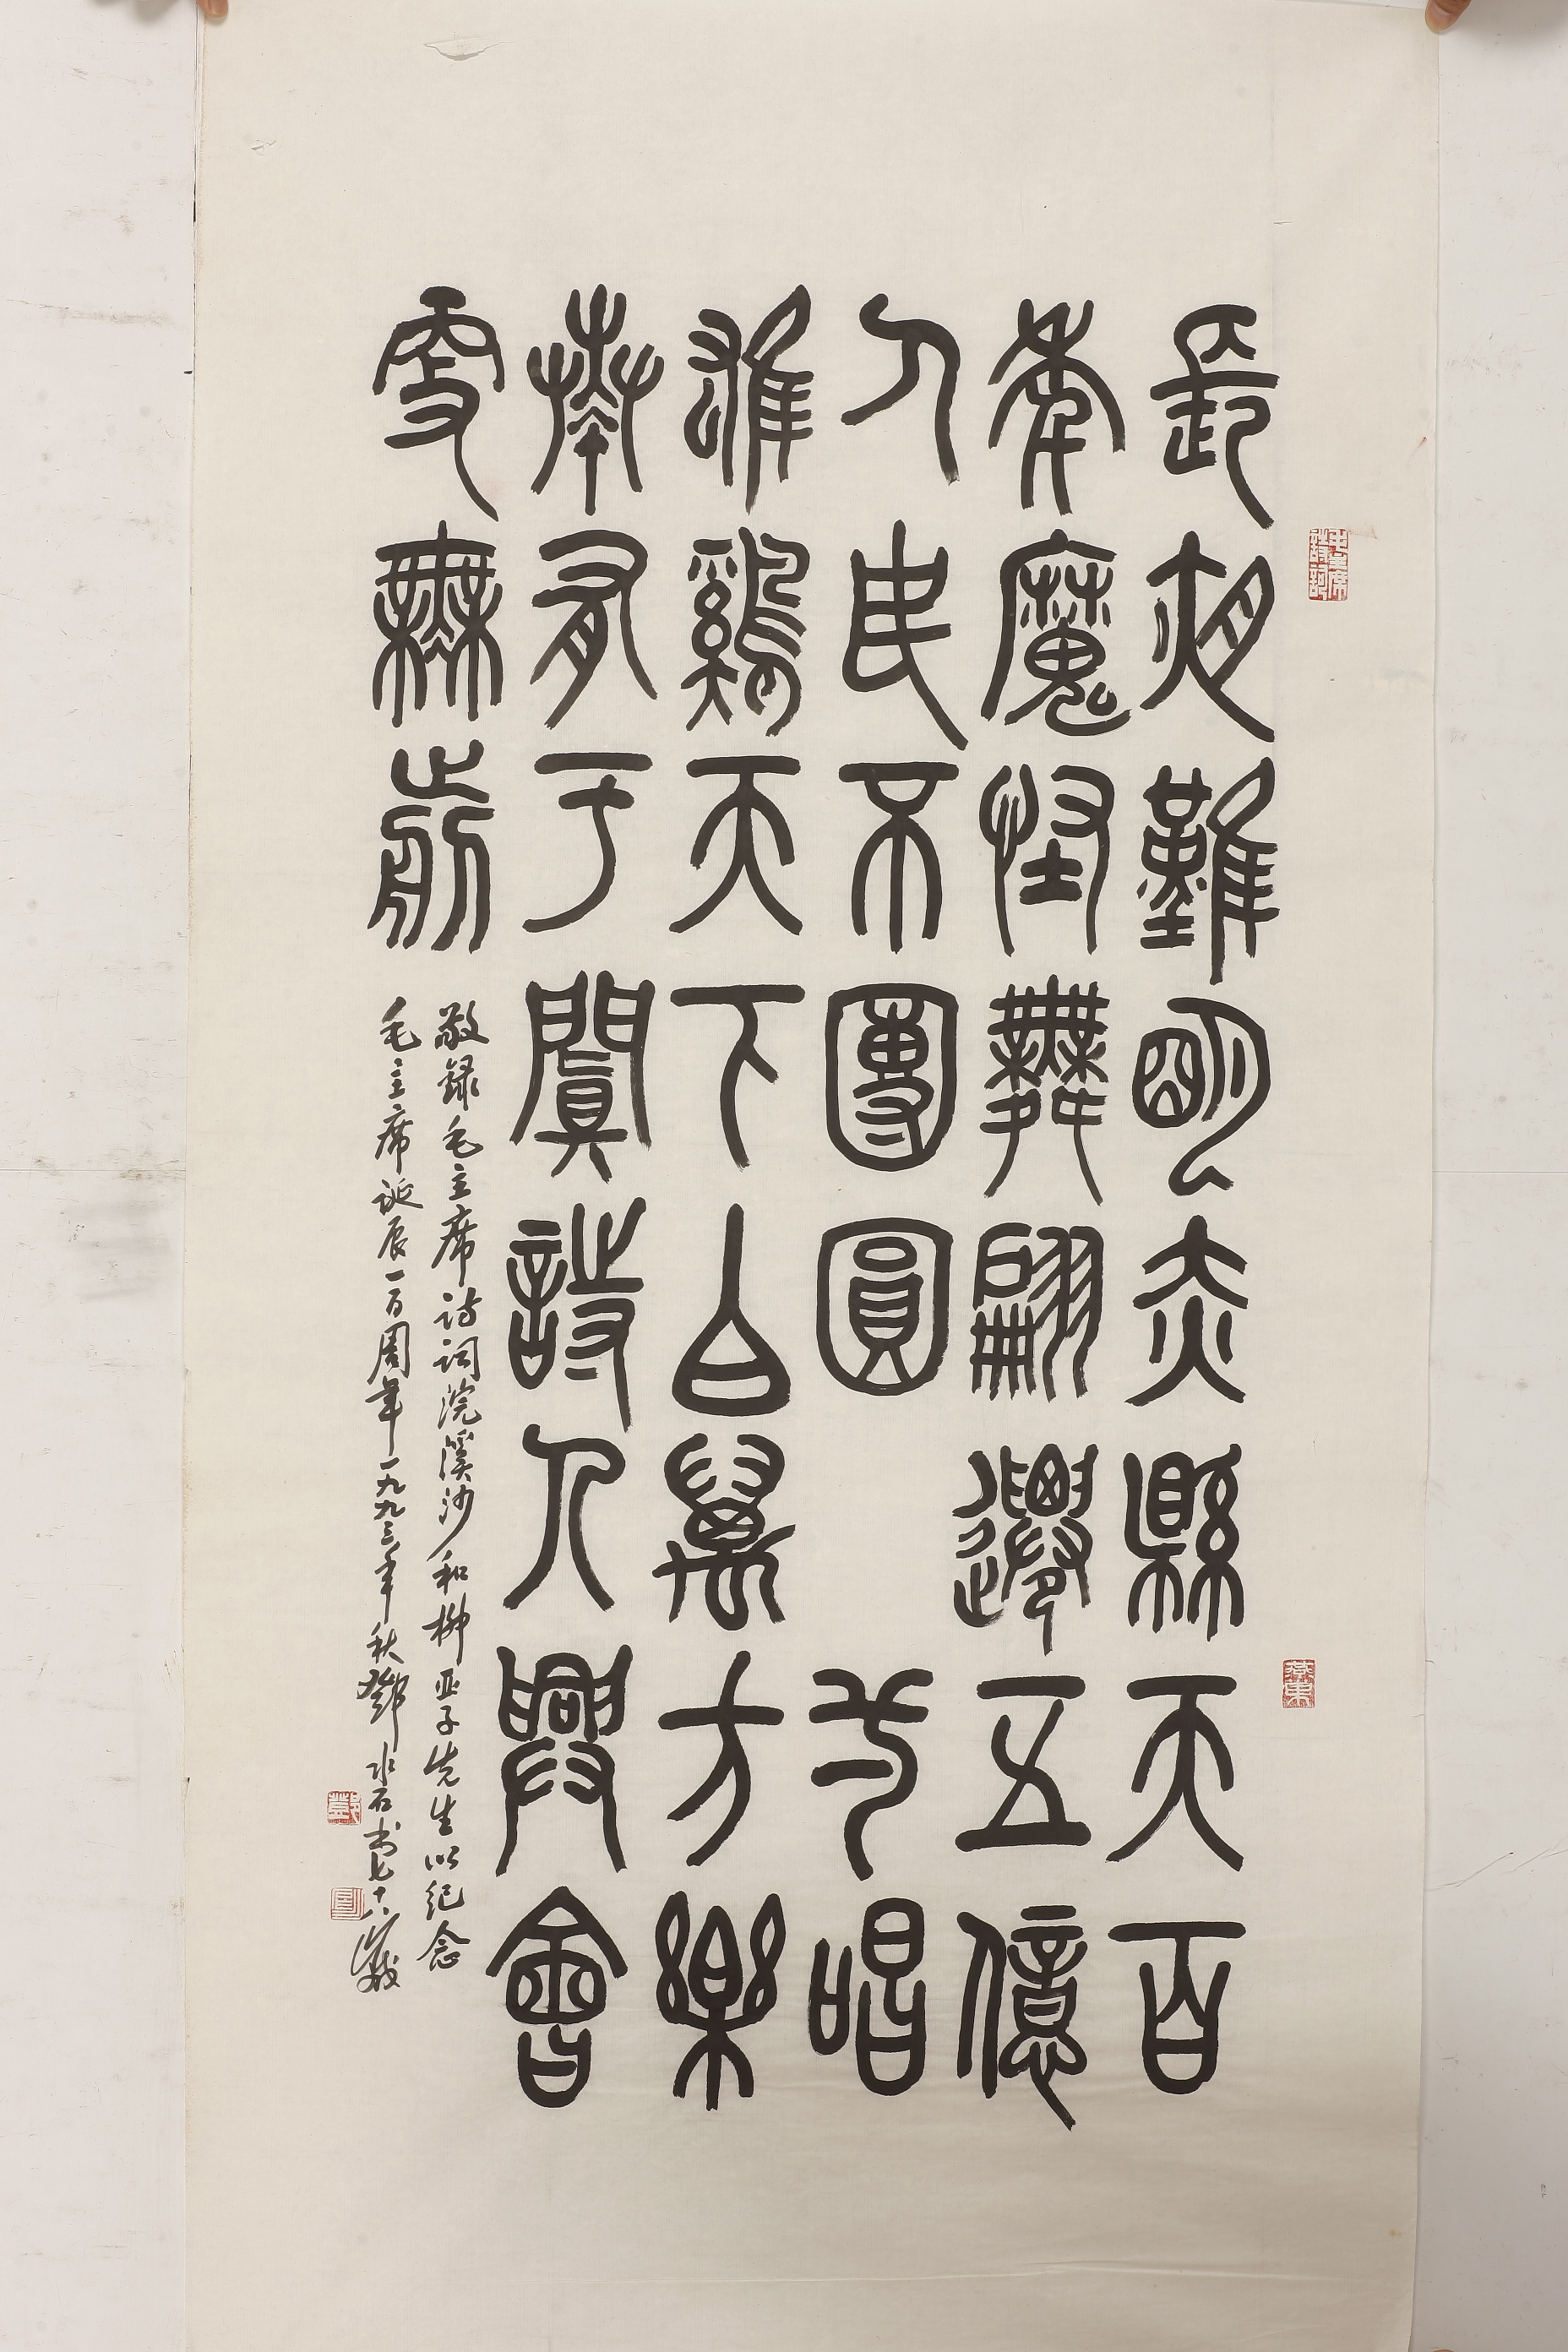 長夜難明赤縣天百
年魔怪舞翩遷五億
人民不團圓 弌唱
雄鷄天下白萬方樂
奏有于闐詩人興會
更無前
敬録毛主席诗词浣溪沙和柳亚子先生以纪念
毛主席诞辰一百周年一九九三年秋鄧水石书七十八歲
毛主席詩詞